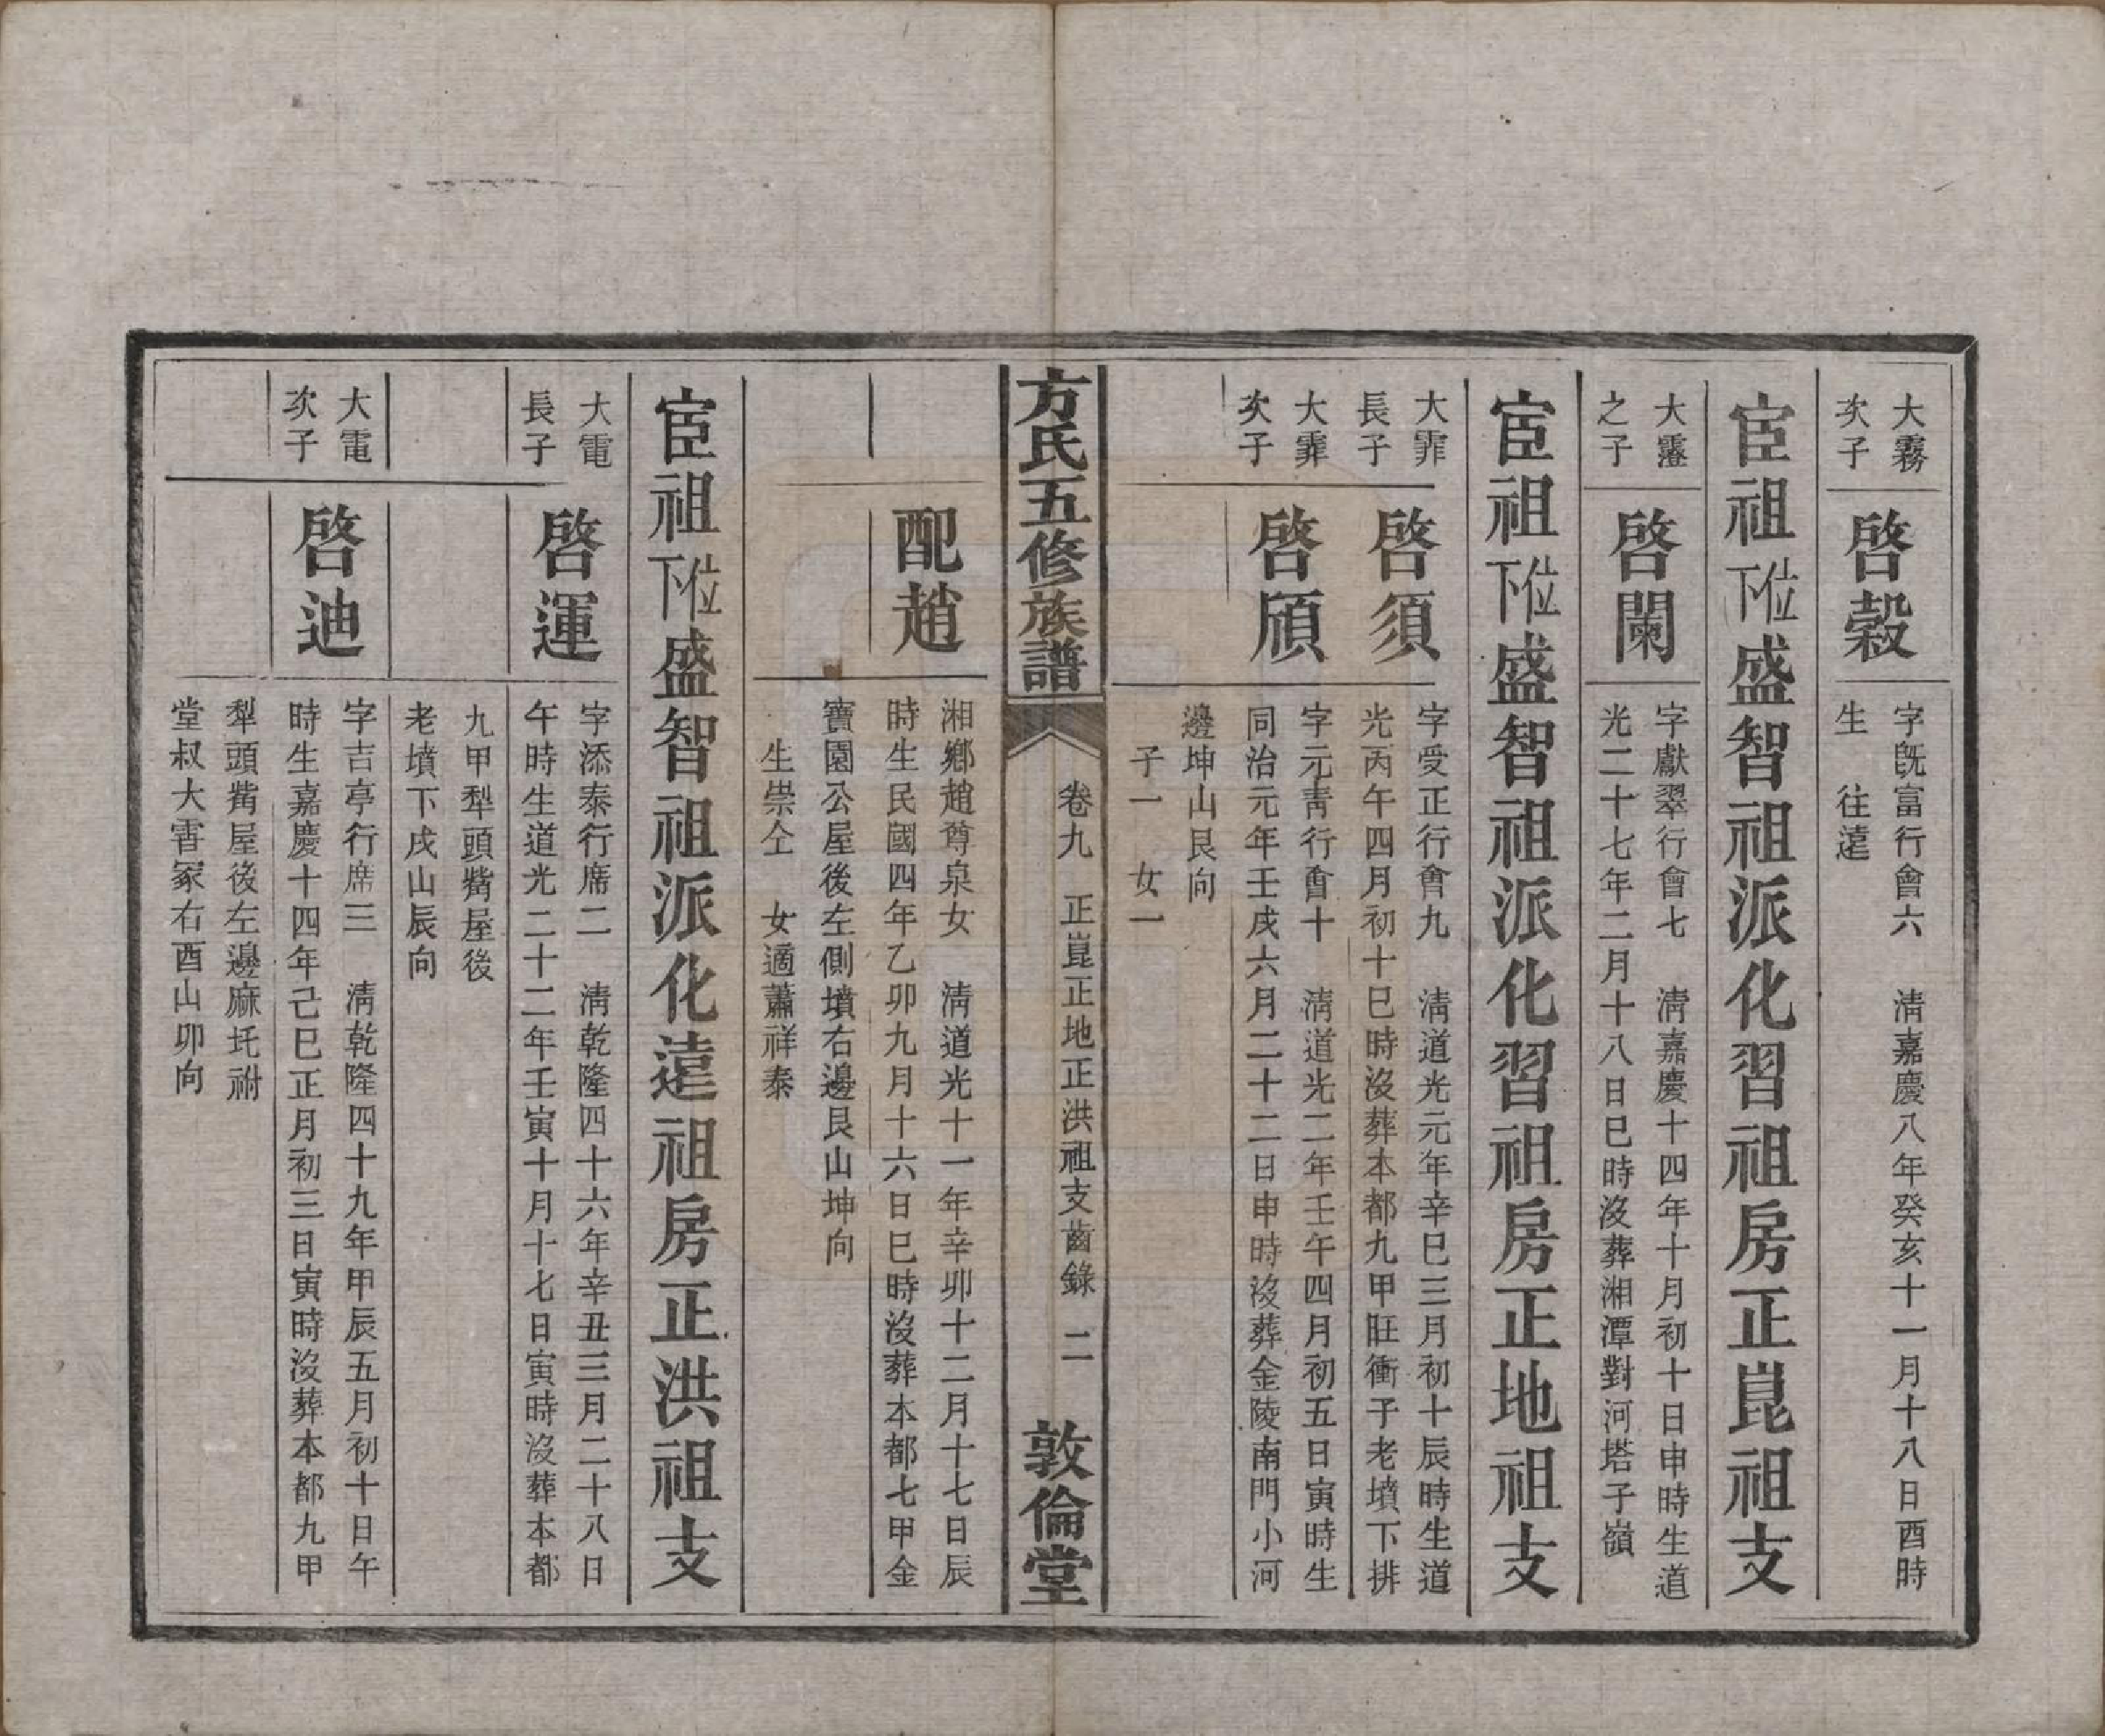 大霧
次子
啓穀
字旣富行會六　淸嘉慶八年癸亥十一月十八日酉時
生　往遠
宦祖位下盛智祖派化習祖房正崑祖支
大霻
之子
啓闌
字獻翠行會七　淸嘉慶十四年十月初十日申時生道
光二十七年二月十八日巳時沒葬湘潭對河塔子嶺
宦祖位下盛智祖派化習祖房正地祖支
大霏
長子
啓須
字受正行會九　淸道光元年辛巳三月初十辰時生道
光丙午四月初十巳時沒葬本都九甲旺衝子老墳下排
大霏
次子
啓頎
字元靑行會十　淸道光二年壬午四月初五日寅時生
同治元年壬戌六月二十二日申時沒葬金陵南門小河
邊坤山艮向
子一　女一
方氏五修族譜
卷九　正崑正地正洪祖支齒錄　二
敦倫堂
配趙
湘鄉趙尊泉女　淸道光十一年辛卯十二月十七日辰
時生民國四年乙卯九月十六日巳時沒葬本都七甲金
寶園公屋後左側墳右邊艮山坤向
生崇仝　女適蕭祥泰
宦祖位下盛智祖派化遠祖房正洪祖支
大電
長子
啓運
字添泰行席二　淸乾隆四十六年辛丑三月二十八日
午時生道光二十二年壬寅十月十七日寅時沒葬本都
九甲犁頭觜屋後
老墳下戌山辰向
大電
次子
啓迪
字吉亭行席三　淸乾隆四十九年甲辰五月初十日午
時生嘉慶十四年己巳正月初三日寅時沒葬本都九甲
犁頭觜屋後左邊麻圫祔
堂叔大霅冢右酉山卯向